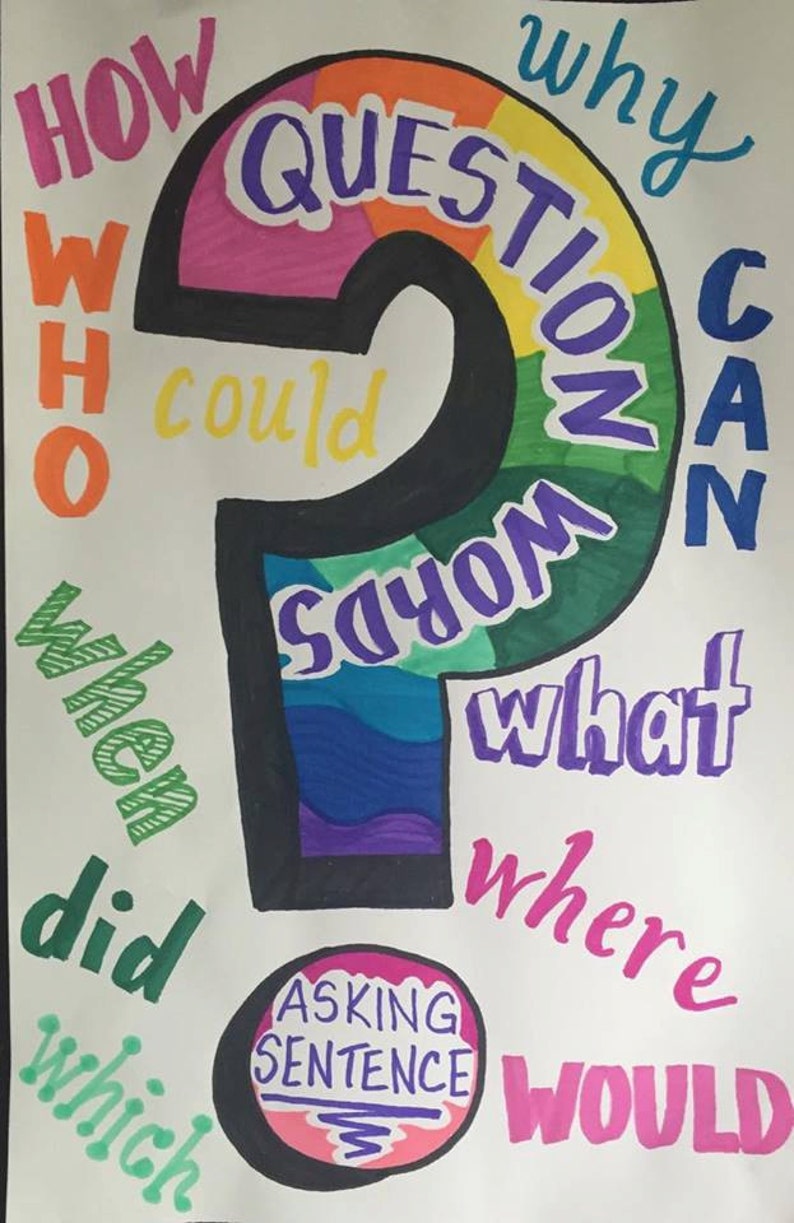 HOW
why
QUESTION
WHO
CAN
could
WORDS
when
what
did
where
ASKING
SENTENCE
which
WOULD